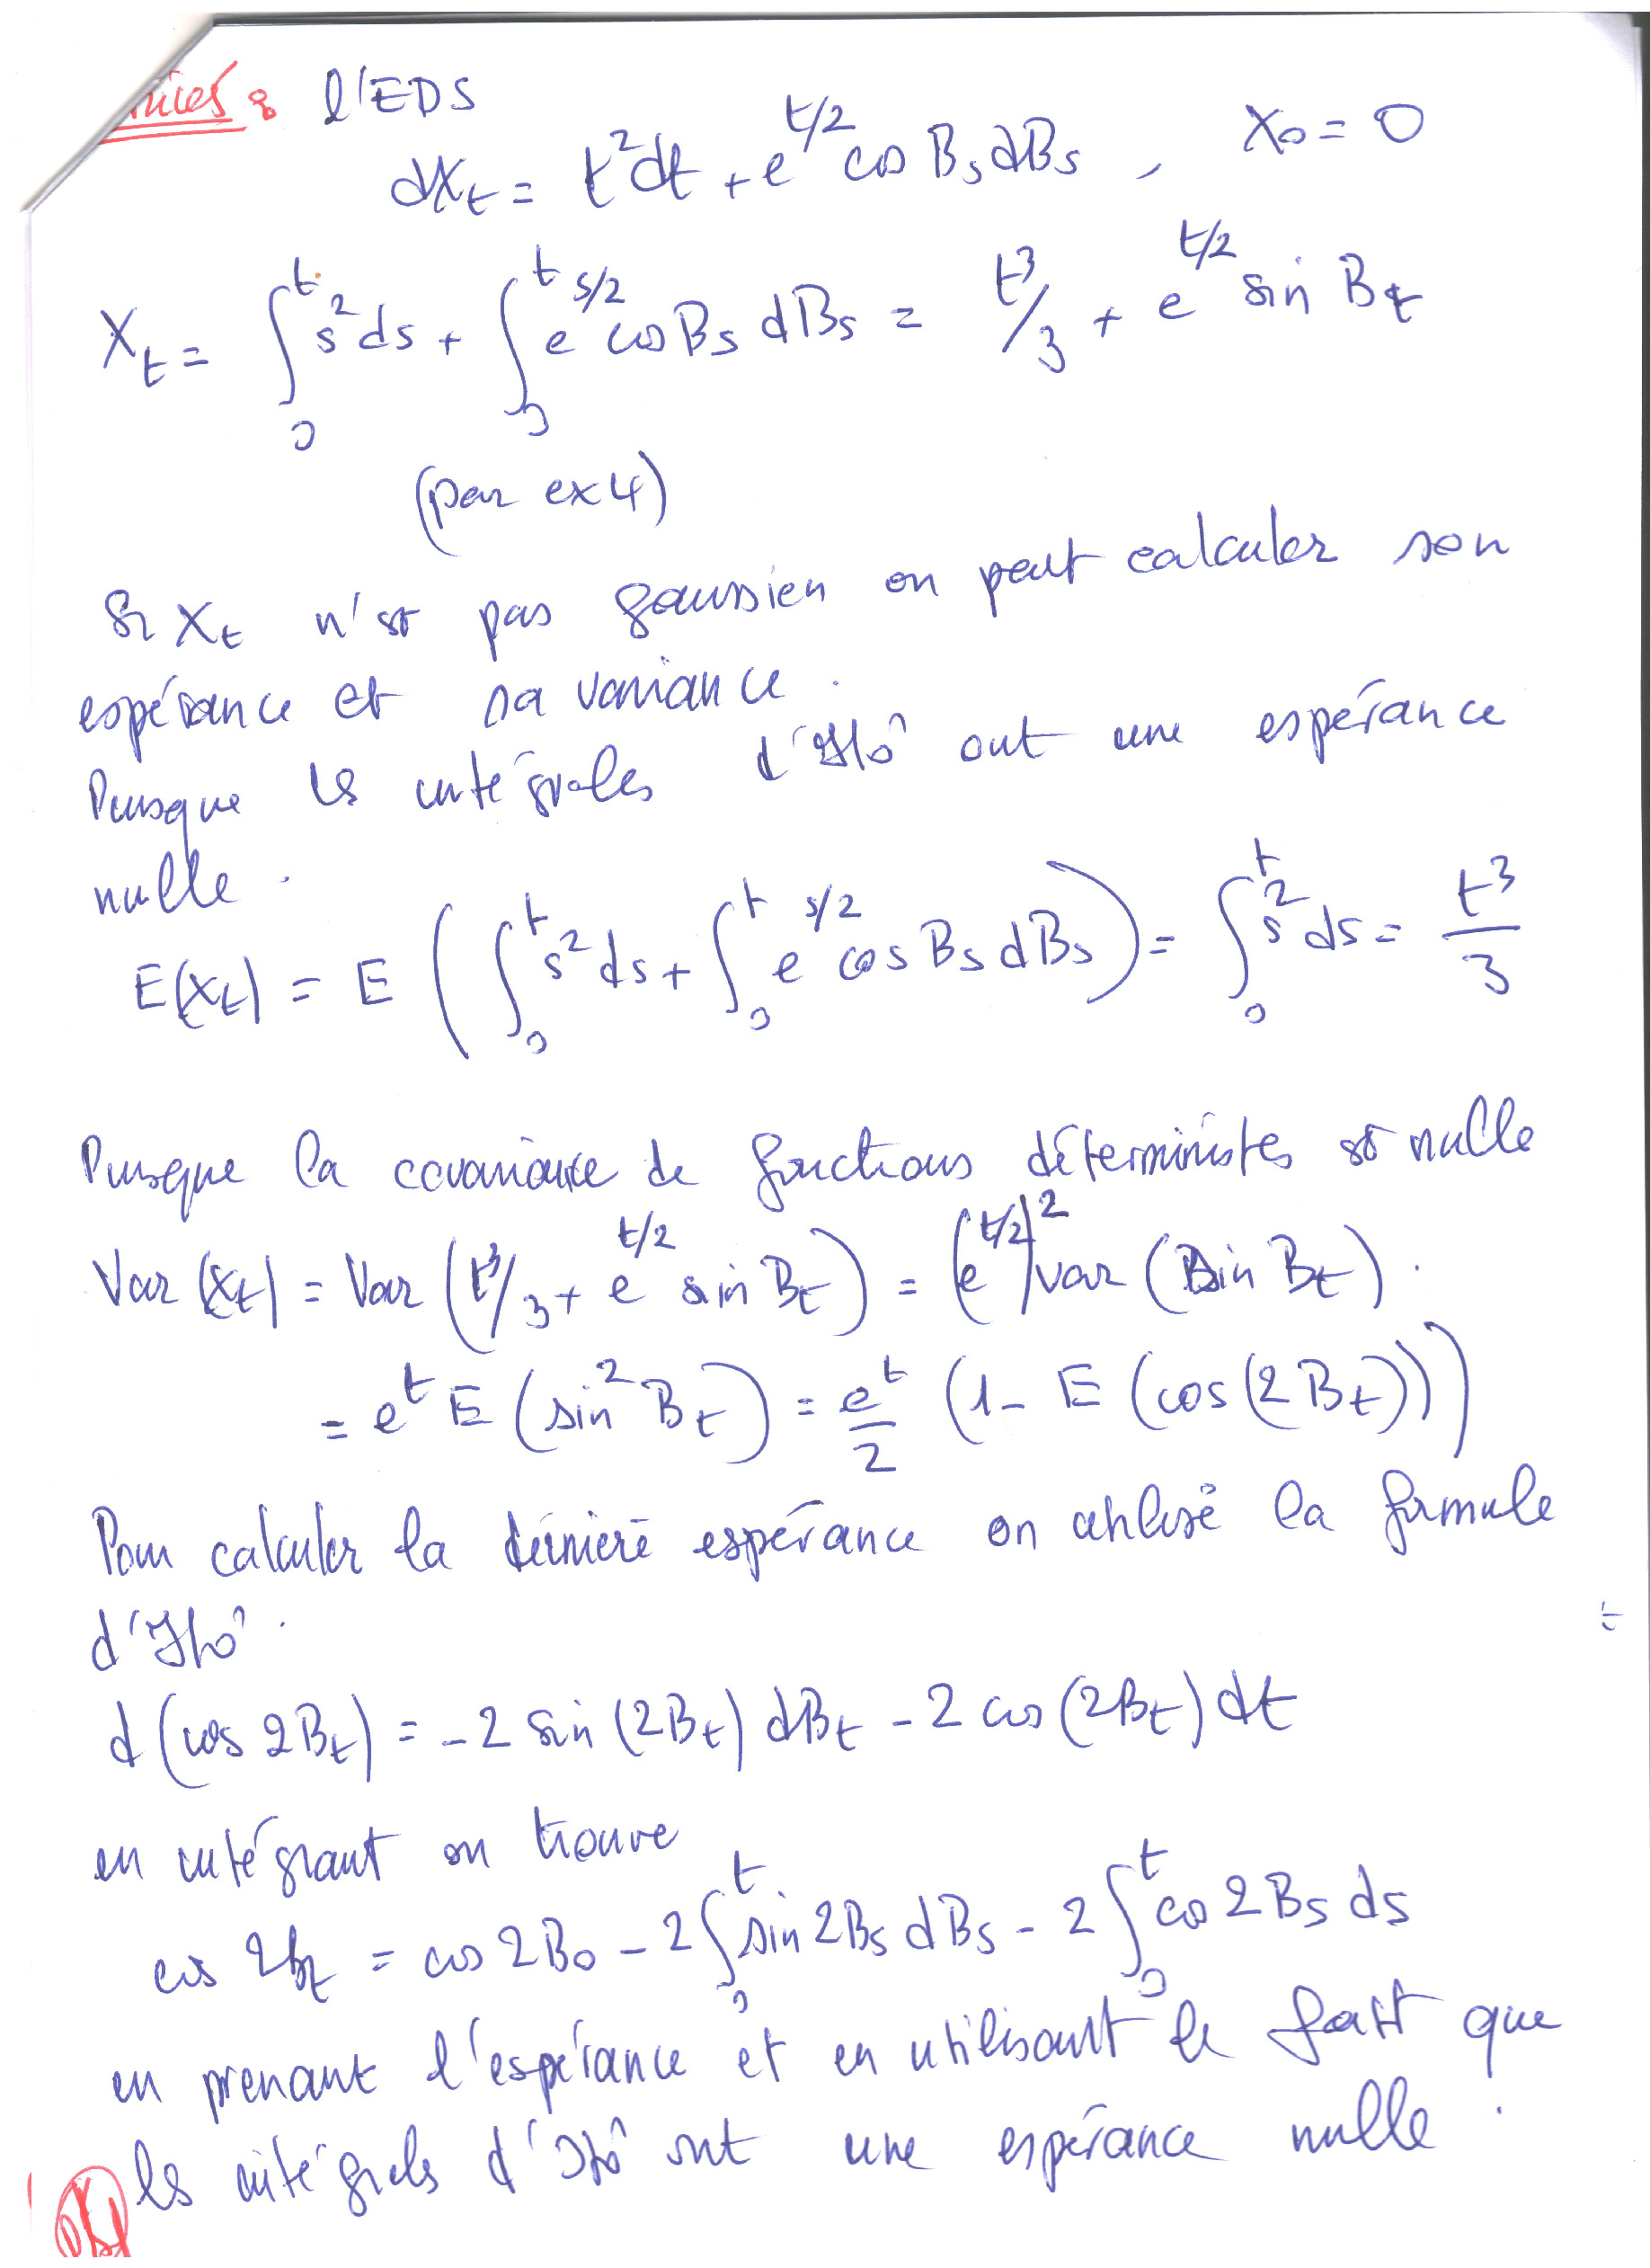 l'EDS
dX_t = t^2 dt + e^{t/2} cos B_s dB_s , X_0 = 0
X_t = ∫_0^t s^2 ds + ∫_0^t e^{s/2} cos B_s dB_s = t^3/3 + e^{t/2} sin B_t
(par ex 4)
Si X_t n'est pas gaussien on peut calculer son
espérance et sa variance.
Puisque les intégrales d'Itô ont une espérance
nulle.
E(X_t) = E(∫_0^t s^2 ds + ∫_0^t e^{s/2} cos B_s dB_s) = ∫_0^t s^2 ds = t^3/3
Puisque la covariance de fonctions déterministes est nulle
Var(X_t) = Var(t^3/3 + e^{t/2} sin B_t) = (e^{t/2})^2 var(sin B_t).
= e^t E(sin^2 B_t) = e^t/2 (1 - E(cos(2B_t)))
Pour calculer la dernière espérance on utilise la formule
d'Itô.
d(cos 2B_t) = -2 sin(2B_t) dB_t - 2 cos(2B_t) dt
en intégrant on trouve
cos 2B_t = cos 2B_0 - 2∫_0^t sin 2B_s dB_s - 2∫_0^t cos 2B_s ds
en prenant l'espérance et en utilisant le fait que
les intégrales d'Itô ont une espérance nulle.